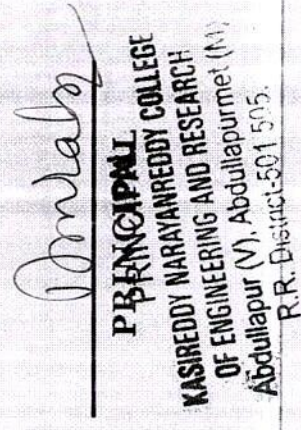 PRINCIPAL
PRINCIPAL
KASIREDDY NARAYANREDDY COLLEGE
OF ENGINEERING AND RESEARCH
Abdullapur (V), Abdullapurmet (M)
R.R. District-501 505.